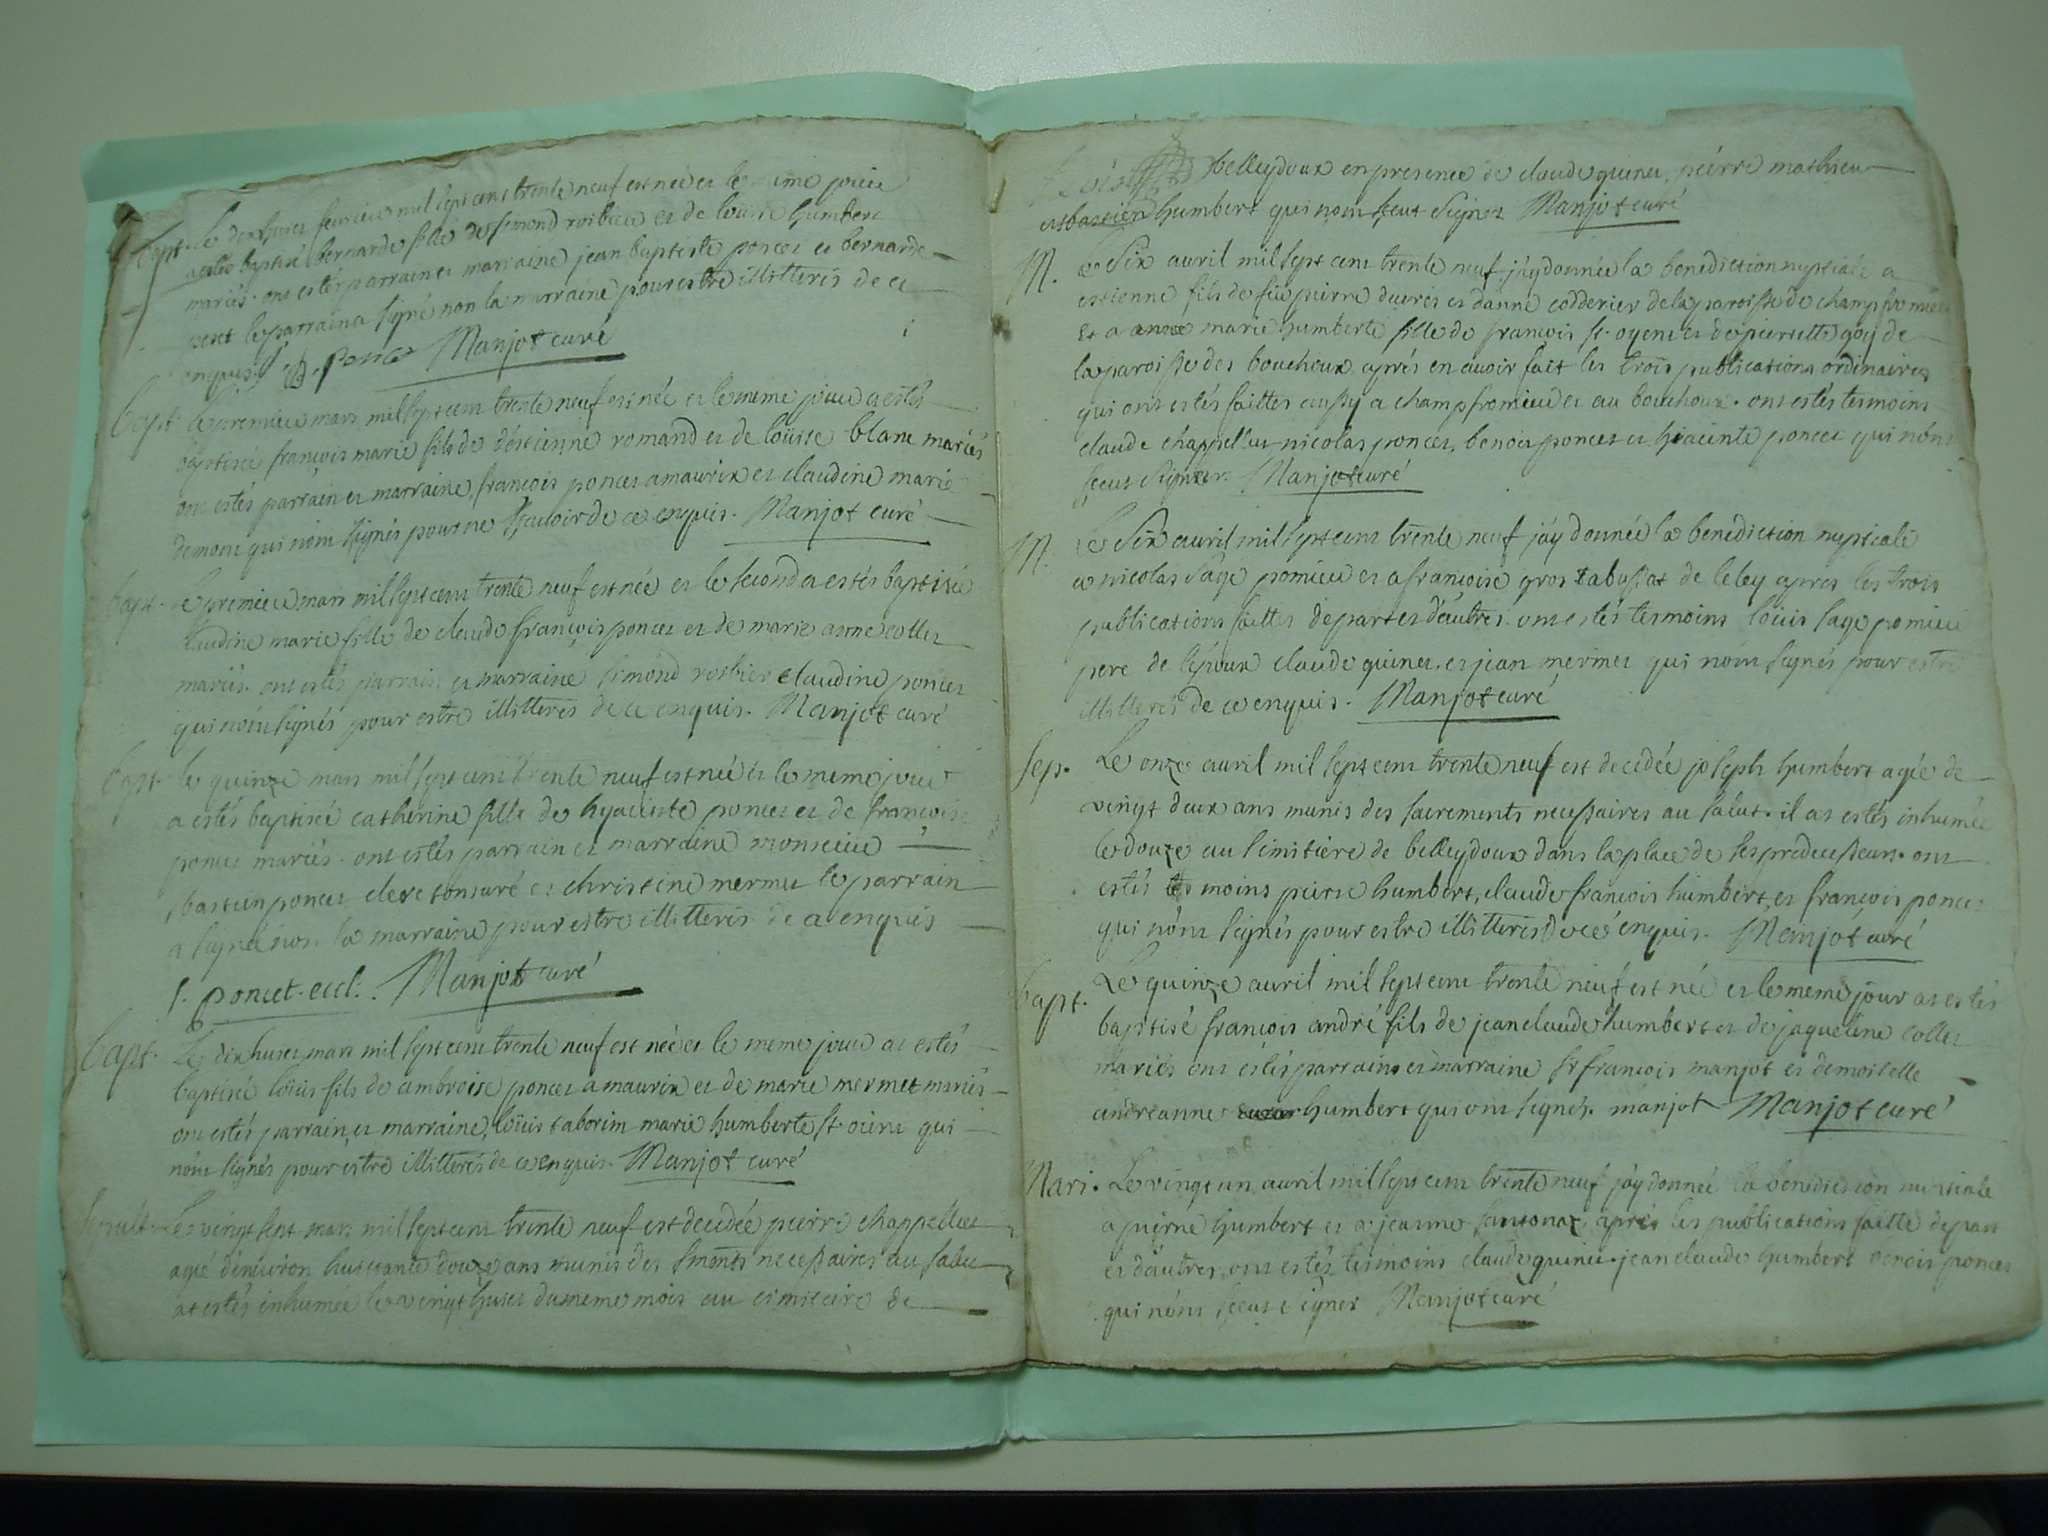 bapt. Le dix huict feurieu mil sept cens trente neuf est née et le même joueu
a estés baptisé bernarde fille de simond rosbieu et de loüise humbert
mariés. ont estés parrain et marraine jean baptiste poncet et bernarde
poncet le parrain a signé non la marraine pour estre illitteris de ce
enquis. J. B. poncet Manjot curé
bapt. le premieu mars mil sept cent trente neuf est née et le meme joueu a estés
baptiseé françois marie fils de d'estienne romand et de loüise blanc mariés
ont estés parrain et marraine françois poncet a maurix et claudine marie
demont qui n'ont signés pour ne scauoir de ce enquis. Manjot curé
bapt. le premieu mars mil sept cent trente neuf est née et le second a estés baptisée
claudine marie fille de claude françois poncet et de marie anne collet
mariés. ont estés parrain et marraine simond rosbieu claudine poncet
qui n'ont signés pour estre illitteris de ce enquis. Manjot curé
bapt. le quinze mars mil sept cent trente neuf est née et le meme jour
a estés baptiseé catherine fille de hyacinte poncet et de françoise
poncet mariés. ont estés parrain et marraine monsieur
sbastien poncet clerc tonsuré et christine mermet le parrain
a signé non la marraine pour estre illitteris de ce enquis
S. poncet. eccl. Manjot curé
bapt. Le dix huict mars mil sept cent trente neuf est née et le meme joueu at estés
baptisé loüis fils de ambroise poncet a maurix et de marie mermet mariés
ont estés parrain et marraine, loüis taborin marie humberte st. oient qui
n'ont signés pour estre illitteris de ce enquis. Manjot curé
sepult. Le vingt sept mars mil sept cent trente neuf est decedée pierre chappelluz
agé d'enuiron huictante douze ans munis des sments necessaires au salut
at estés inhumée le vengt huict du meme mois au cimitiere de
belleydoux en presence de claude quinet, pierre mathieu
et sbastien humbert qui n'ont sceut signer Manjot curé
M. Le six auril mil sept cent trente neuf j'ay donnée la benediction nuptiale a
estienne fils de feu pierre ducrès et d'anne codderier de la paroisse de champfromieu
Et a anne marie humberte fille de françois st. oyent et de pierrette goy de
la paroisse des boucheux aprés en auoir fait les trois publications ordinaires
qui ont estés faittes aussy a champfromieu et au bouchoux. ont estés tesmoins
claude chappelluz nicolas poncet, benoit poncet et hiacinte poncet qui n'ont
sceut signer. Manjot curé
M. Le six auril mil sept cent trente neuf j'ay donnée la benediction nuptiale
a nicolas sage pomieu et a françoise gros tabussat de leley apres les trois
publications faittes de part et d'autres. ont estés tesmoins loüis sage pomieu
pere de l'époux claude quinet. et jean mermet qui n'ont signés pour estre
illitteres de ce enquis. Manjot curé
sep. Le onze auril mil sept cent trente neuf est decedée joseph humbert agée de
vingt deux ans munis des sacrements necessaires au salut. il at estés inhumée
le douze au cimitiere de belleydoux dans la place de ses predecesseurs. ont
estés tesmoins pierre humbert, claude françois humbert, et françois poncet
qui n'ont signés pour estre illitteris de cé enquis. Manjot curé
bapt. Le quinze auril mil sept cent trente neuf est née et le meme jour at estés
baptisé françois andré fils de jean claude humbert et de jaqueline collet
mariés ont estés parrain et marraine sr françois manjot et demoiselle
andreanne humbert qui ont signés. manjot Manjot curé
Mari. Le vingt un auril mil sept cent trente neuf j'ay donnée la benediction nuptiale
a pierre humbert et a jeanne santonax aprés les publications faitte de part
et d'autres, ont estés tesmoins claude quinet. jean claude humbert benoit poncet
qui n'ont sceut signer Manjot curé